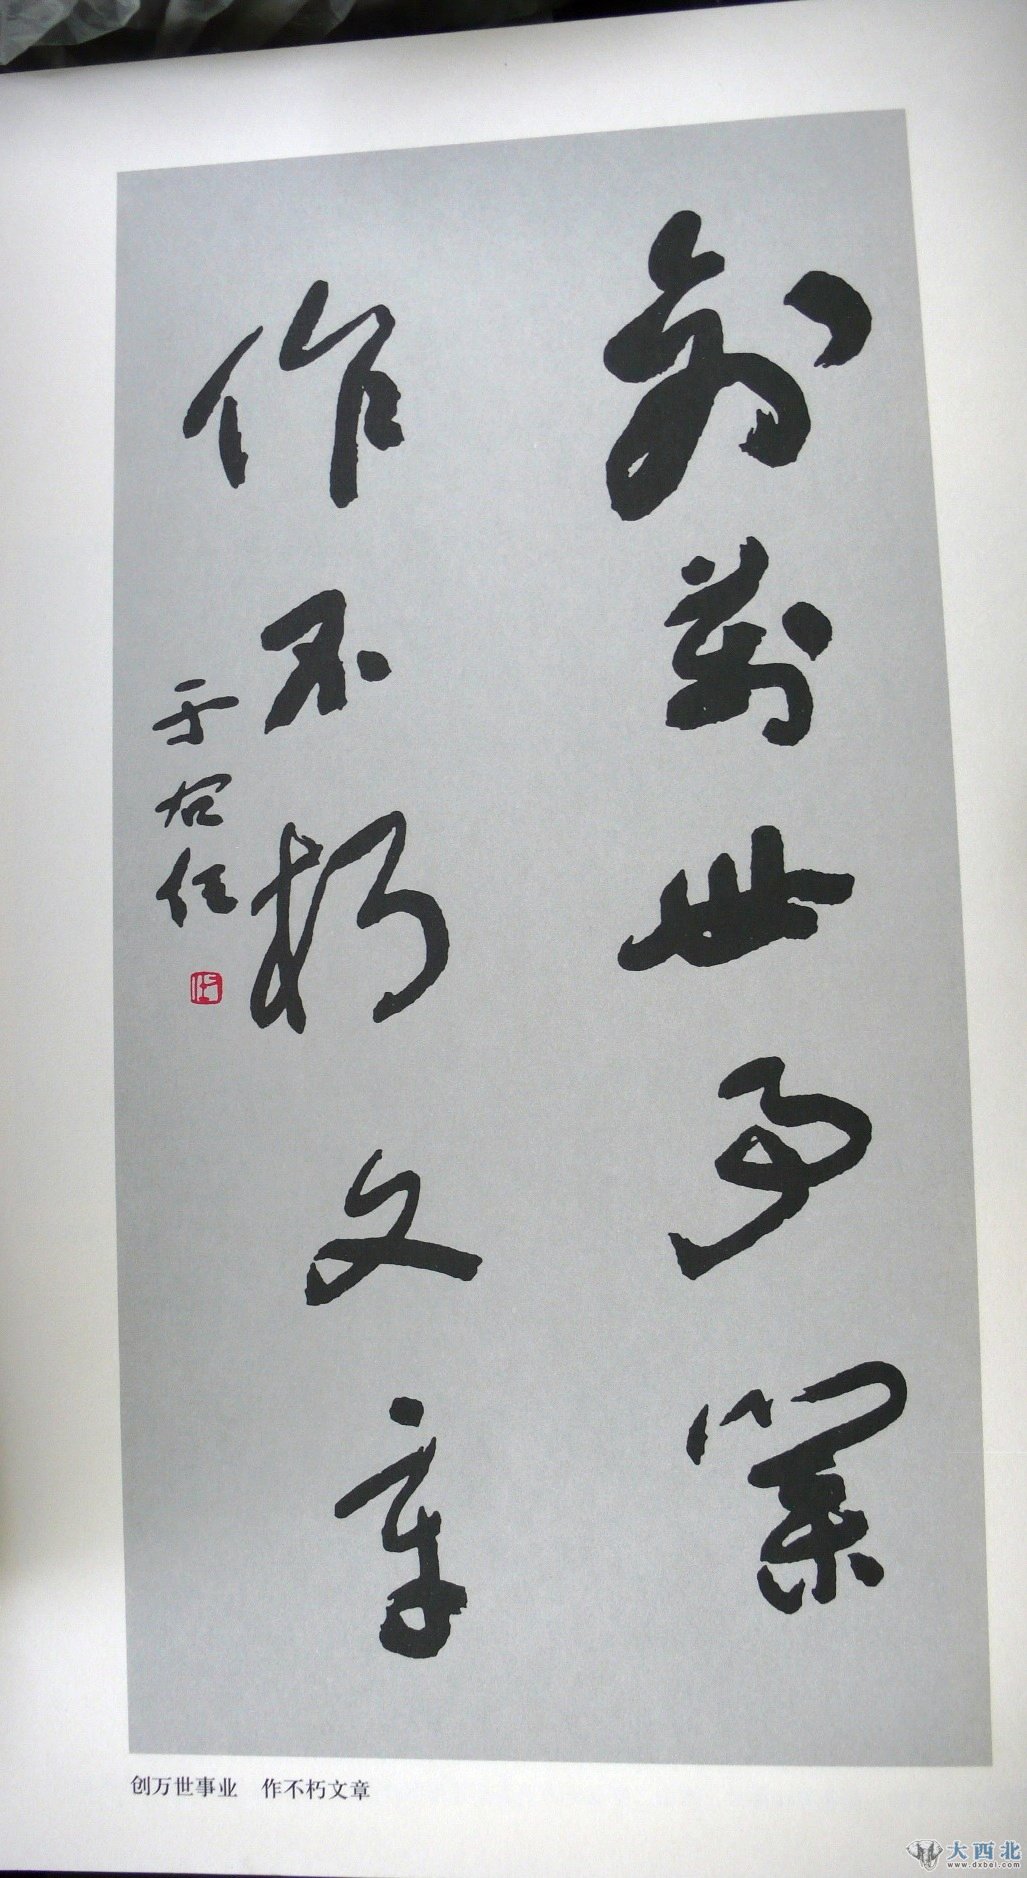 創萬世事業
作不朽文章
于右任
创万世事业 作不朽文章
大西北
www.dxbei.com